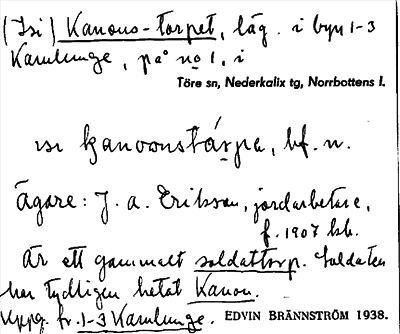 (Isi) Kanons-torpet, läg. i byn 1-3
Kamlunge, på no 1, i
Töre sn, Nederkalix tg, Norrbottens l.
ɪsɪ kanoonstárpa, bf. n.
Ägare: J. A. Eriksson, jordarbetare,
f. 1907 bb.
Är ett gammalt soldattorp. Soldaten
har tydligen hetat Kanon.
Uppg. fr. 1-3 Kamlunge. EDVIN BRÄNNSTRÖM 1938.